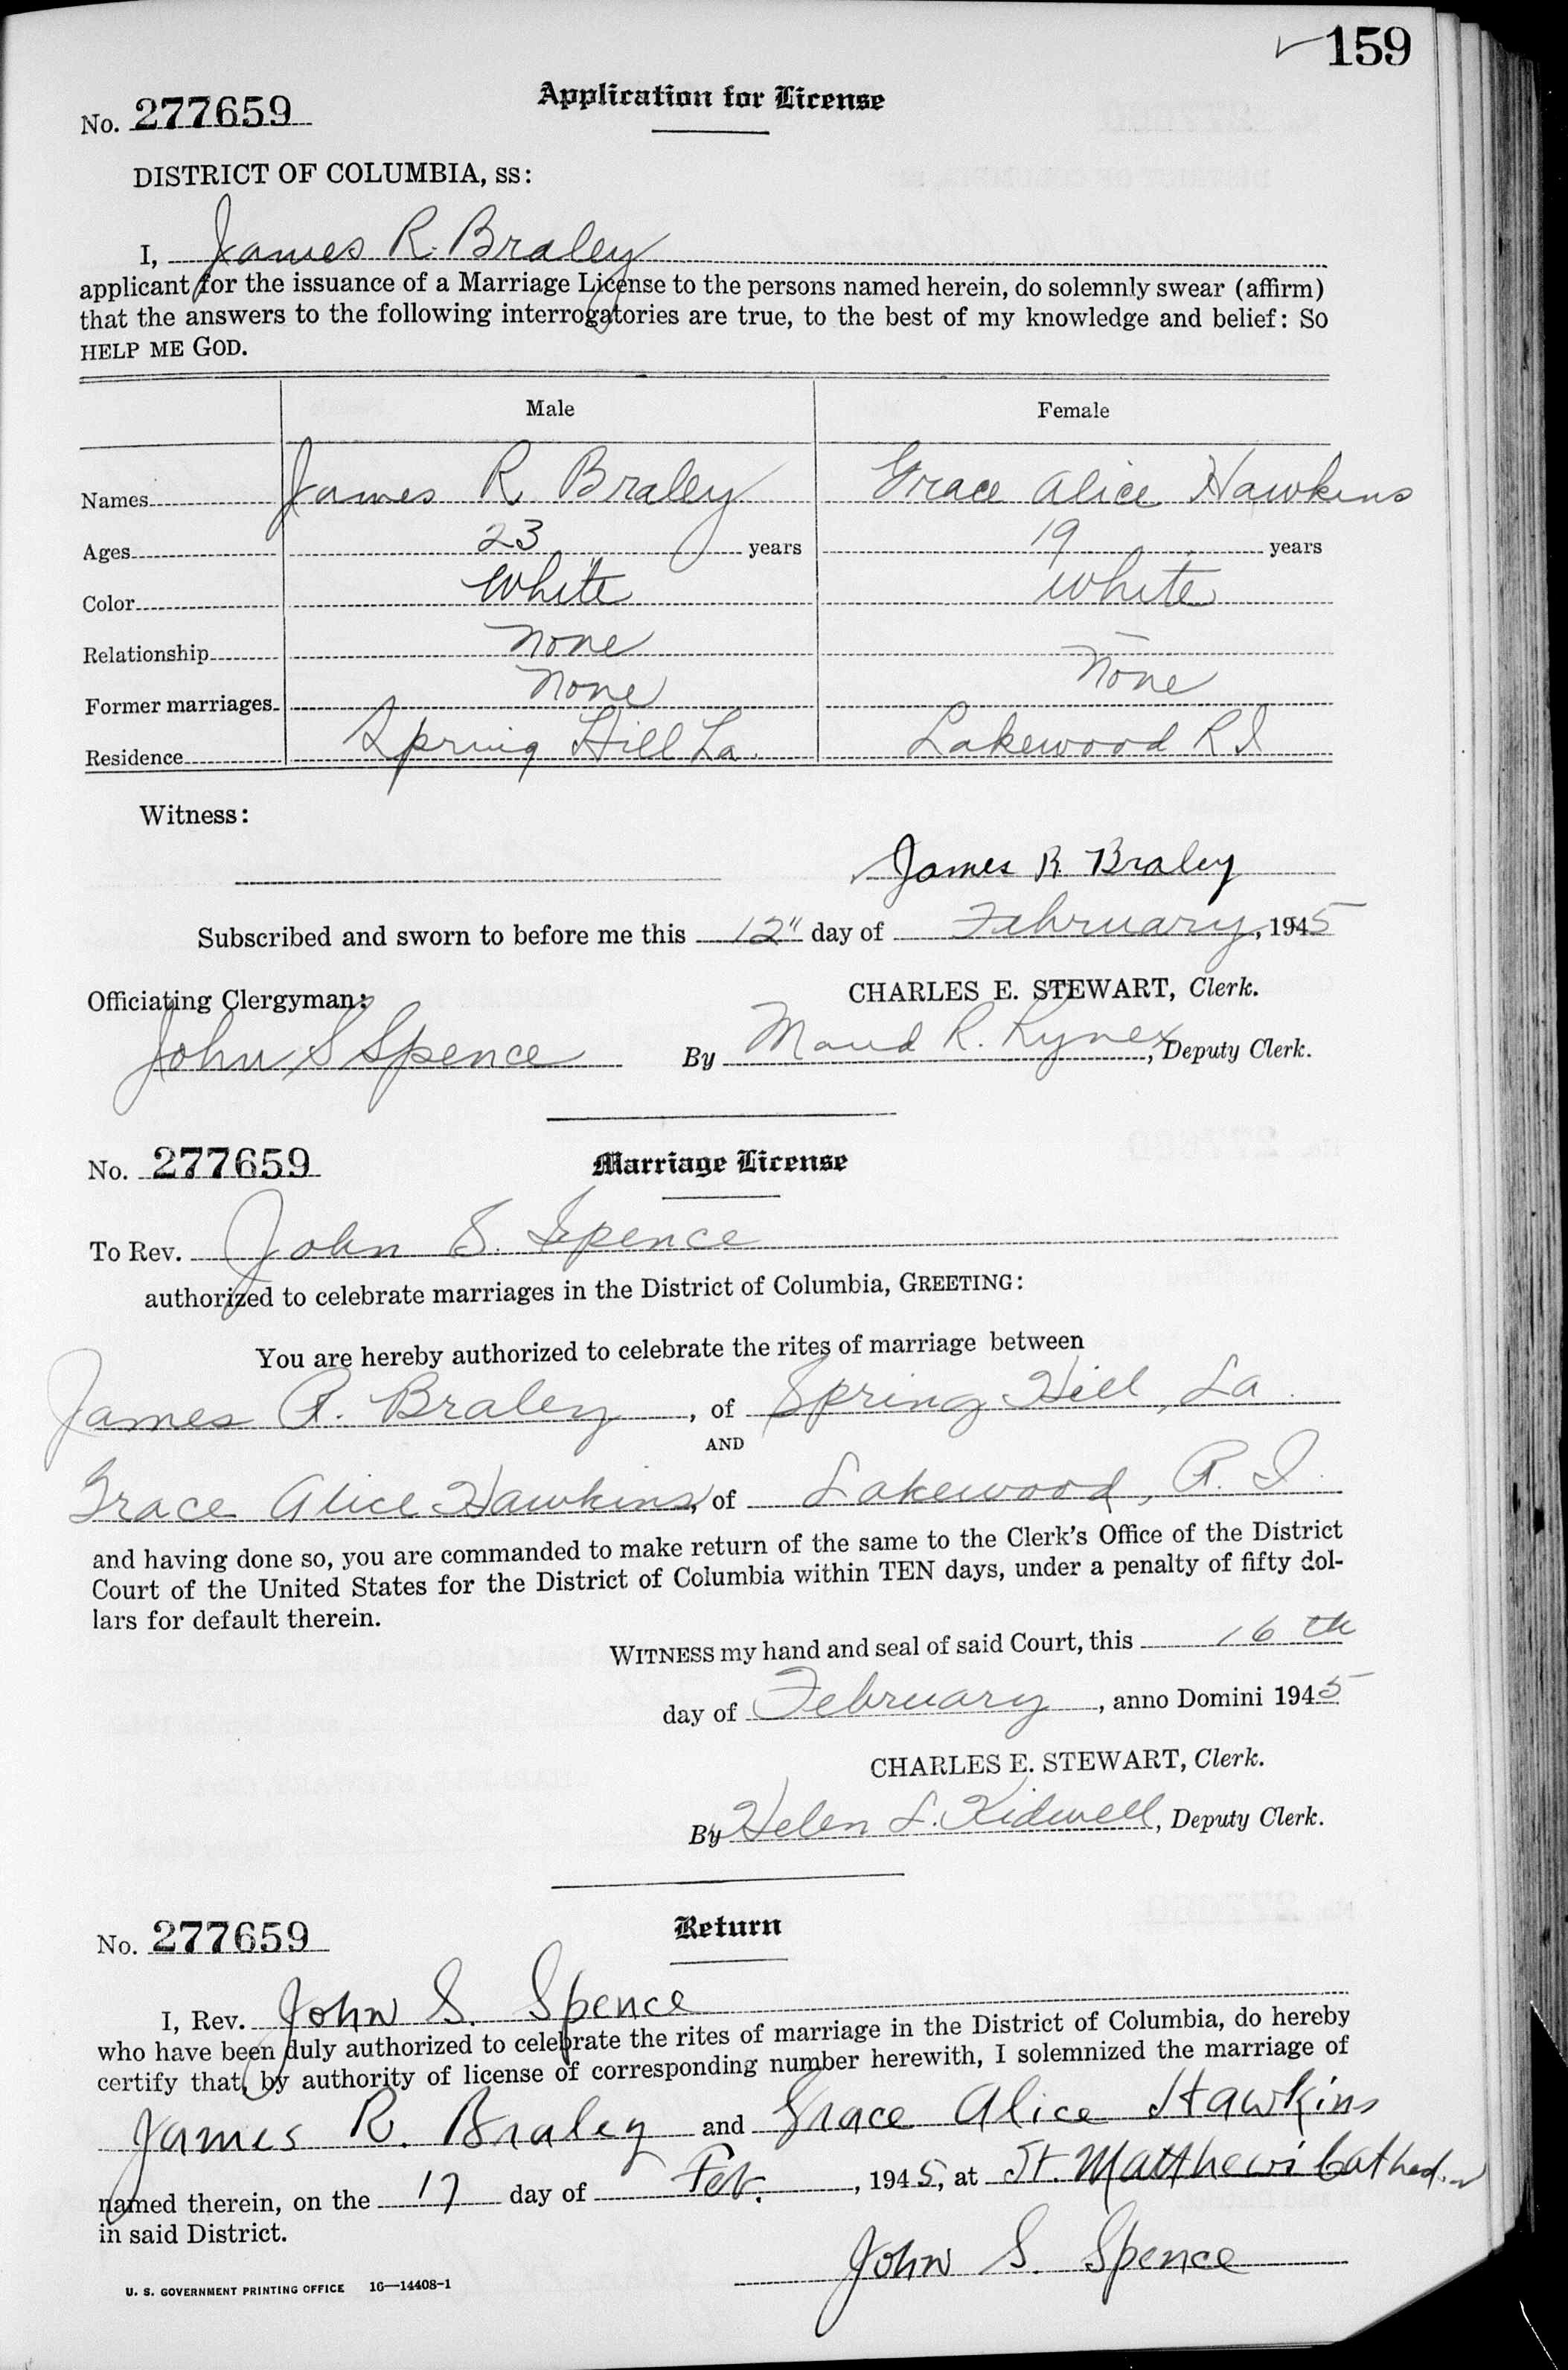 159
No. 277659
Application for License
DISTRICT OF COLUMBIA, SS:
I, James R. Braley
applicant for the issuance of a Marriage License to the persons named herein, do solemnly swear (affirm)
that the answers to the following interrogatories are true, to the best of my knowledge and belief: SO
HELP ME GOD.
Male Female
Names James R. Braley Grace Alice Hawkins
Ages 23 years 19 years
Color White White
Relationship None
Former marriages None None
Residence Spring Hill La. Lakewood R I
Witness:
James R Braley
Subscribed and sworn to before me this 12" day of February, 1945
Officiating Clergyman: CHARLES E. STEWART, Clerk.
John S Spence By Maud R. , Deputy Clerk.
No. 277659 Marriage License
To Rev. John S. Spence
authorized to celebrate marriages in the District of Columbia, GREETING:
You are hereby authorized to celebrate the rites of marriage between
James R. Braley, of Spring Hill, La.
AND
Grace Alice Hawkins, of Lakewood, R. I.
and having done so, you are commanded to make return of the same to the Clerk's Office of the District
Court of the United States for the District of Columbia within TEN days, under a penalty of fifty dol-
lars for default therein.
WITNESS my hand and seal of said Court, this 16 th
day of February, anno Domini 1945
CHARLES E. STEWART, Clerk.
By Helen L. Kidwell, Deputy Clerk.
No. 277659 Return
I, Rev. John S. Spence
who have been duly authorized to celebrate the rites of marriage in the District of Columbia, do hereby
certify that, by authority of license of corresponding number herewith, I solemnized the marriage of
James R. Braley and Grace Alice Hawkins
named therein, on the 17 day of Feb., 1945, at St. Matthews
in said District.
John S. Spence
U. S. GOVERNMENT PRINTING OFFICE 16—14408-1